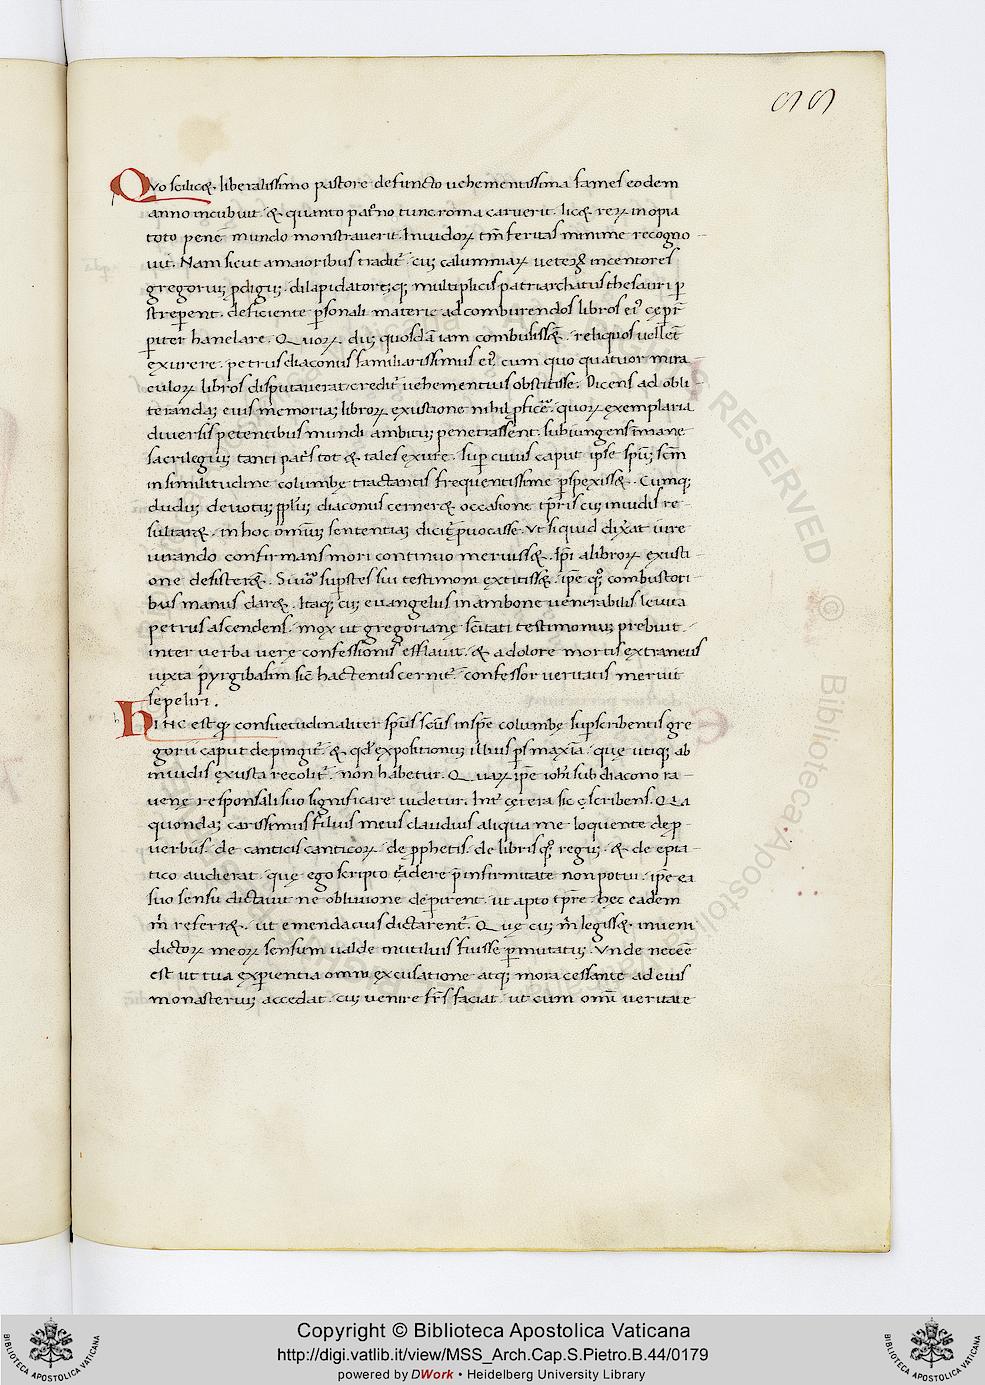 99
Quo scilic&. liberalissimo pastore defuncto uehementissima fames eodem
anno incubuit. & quanto pat̄no tunc roma caruerit. lic& reꝝ inopia
toto pene mundo monstrauerit. Inuidoꝝ tm̄ feritas minime recogno
uit. Nam sicut amaioribus tradit᷑. cū calumniaꝝ ueteꝝ incentores
gregoriū; ꝓdigū; dilapidatorē;q; multiplicis patriarchatus thesauri ꝑ
streperent. deficiente ꝑsonali materie ad comburendos libros ei᷒ cępr̄
piter hanelare. Quoꝝ. dū; quosdā iam combuss&. reliquos uellet
exurere. petrus diaconus familiarissimus ei᷒. cum quo quatuor mira
culoꝝ libros disputauerat. credit᷑ uehementius obstitisse. Dicens ad obli
terandā; euis memoriā; libroꝝ exustione nihil ꝓficere. quoꝝ exemplaria
diuersis petentibus mundi ambitū; penetrassent. subiungens īmane
sacrilegiū; tanti pat̄s tot & tales exure. sup̄ cuius caput ipse spm̄; scm̄
in similitudine columbę tractantis frequentissime ꝑspexiss&. Cumq;
dudū; deuotū; ppl̄m; diaconus cerner& occasione tp̄ris cū; inuidis re
sultar&. in hoc omniū; sententiā; dicit᷑ ꝓuocasse. Ut si quid dixerat iure
iurando confirmans mori continuo meruiss&. ipi alibroꝝ exusti
one desister&. Si uo sup̄stes sui testimonii extitiss&. ipe q; combustori
bus manus dar&. Itaq; cū; euangeliis in ambone uenerabilis leuita
petrus ascendens. mox ut gregorianę sc̄itati testimoniū; prebuit.
inter uerba uerę confessionis efflauit. & a dolore mortis extraneus
iuxta pyrgi basim sic̄ hactenus cernit᷑. confessor ueritatis meruit
sepeliri.
h
HINC est qđ consuetudinaliter spūs scūs inspē̄ columbę sup̄ scribentis gre
gorii caput depingit᷑. & qđ expositionū; illius ps̄ maxīa. quę utiq; ab
inuidis exusta recolit᷑. non habetur. Quaꝝ ipe iohī subdiacono ra
uenę responsali suo significare uidetur. Int᷑ cętera sic ęscribens. Quia
quondā; carissimus filius meus claudius aliqua me loquente de ꝓ
uerbiis. de canticis canticoꝝ. de ꝓphetis. de libris q; regū; & de epta
tico audierat. quę ego scripto tradere p̄ infirmitate non potui. ipe ea
suo sensu dictauit ne obliuione deperirent. ut apto tp̄re. hęc eadem
m̄ referr&. ut emendacius dictarent᷑. Quę cū; m̄ legiss&. inueni
dictoꝝ meoꝝ sensum ualde inutilius fuisse ꝑmutatū; Vnde necēe
est ut tua exꝑientia omni excusatione atq; mora cessante ad eius
monasteriū; accedat. cū; uenire fr̄s faciat. ut cum omī ueritate
ALL RIGHTS RESERVED © Biblioteca Apostolica Vaticana
Copyright © Biblioteca Apostolica Vaticana
http://digi.vatlib.it/view/MSS_Arch.Cap.S.Pietro.B.44/0179
powered by DWork • Heidelberg University Library
BIBLIOTECA APOSTOLICA VATICANA
BIBLIOTECA APOSTOLICA VATICANA